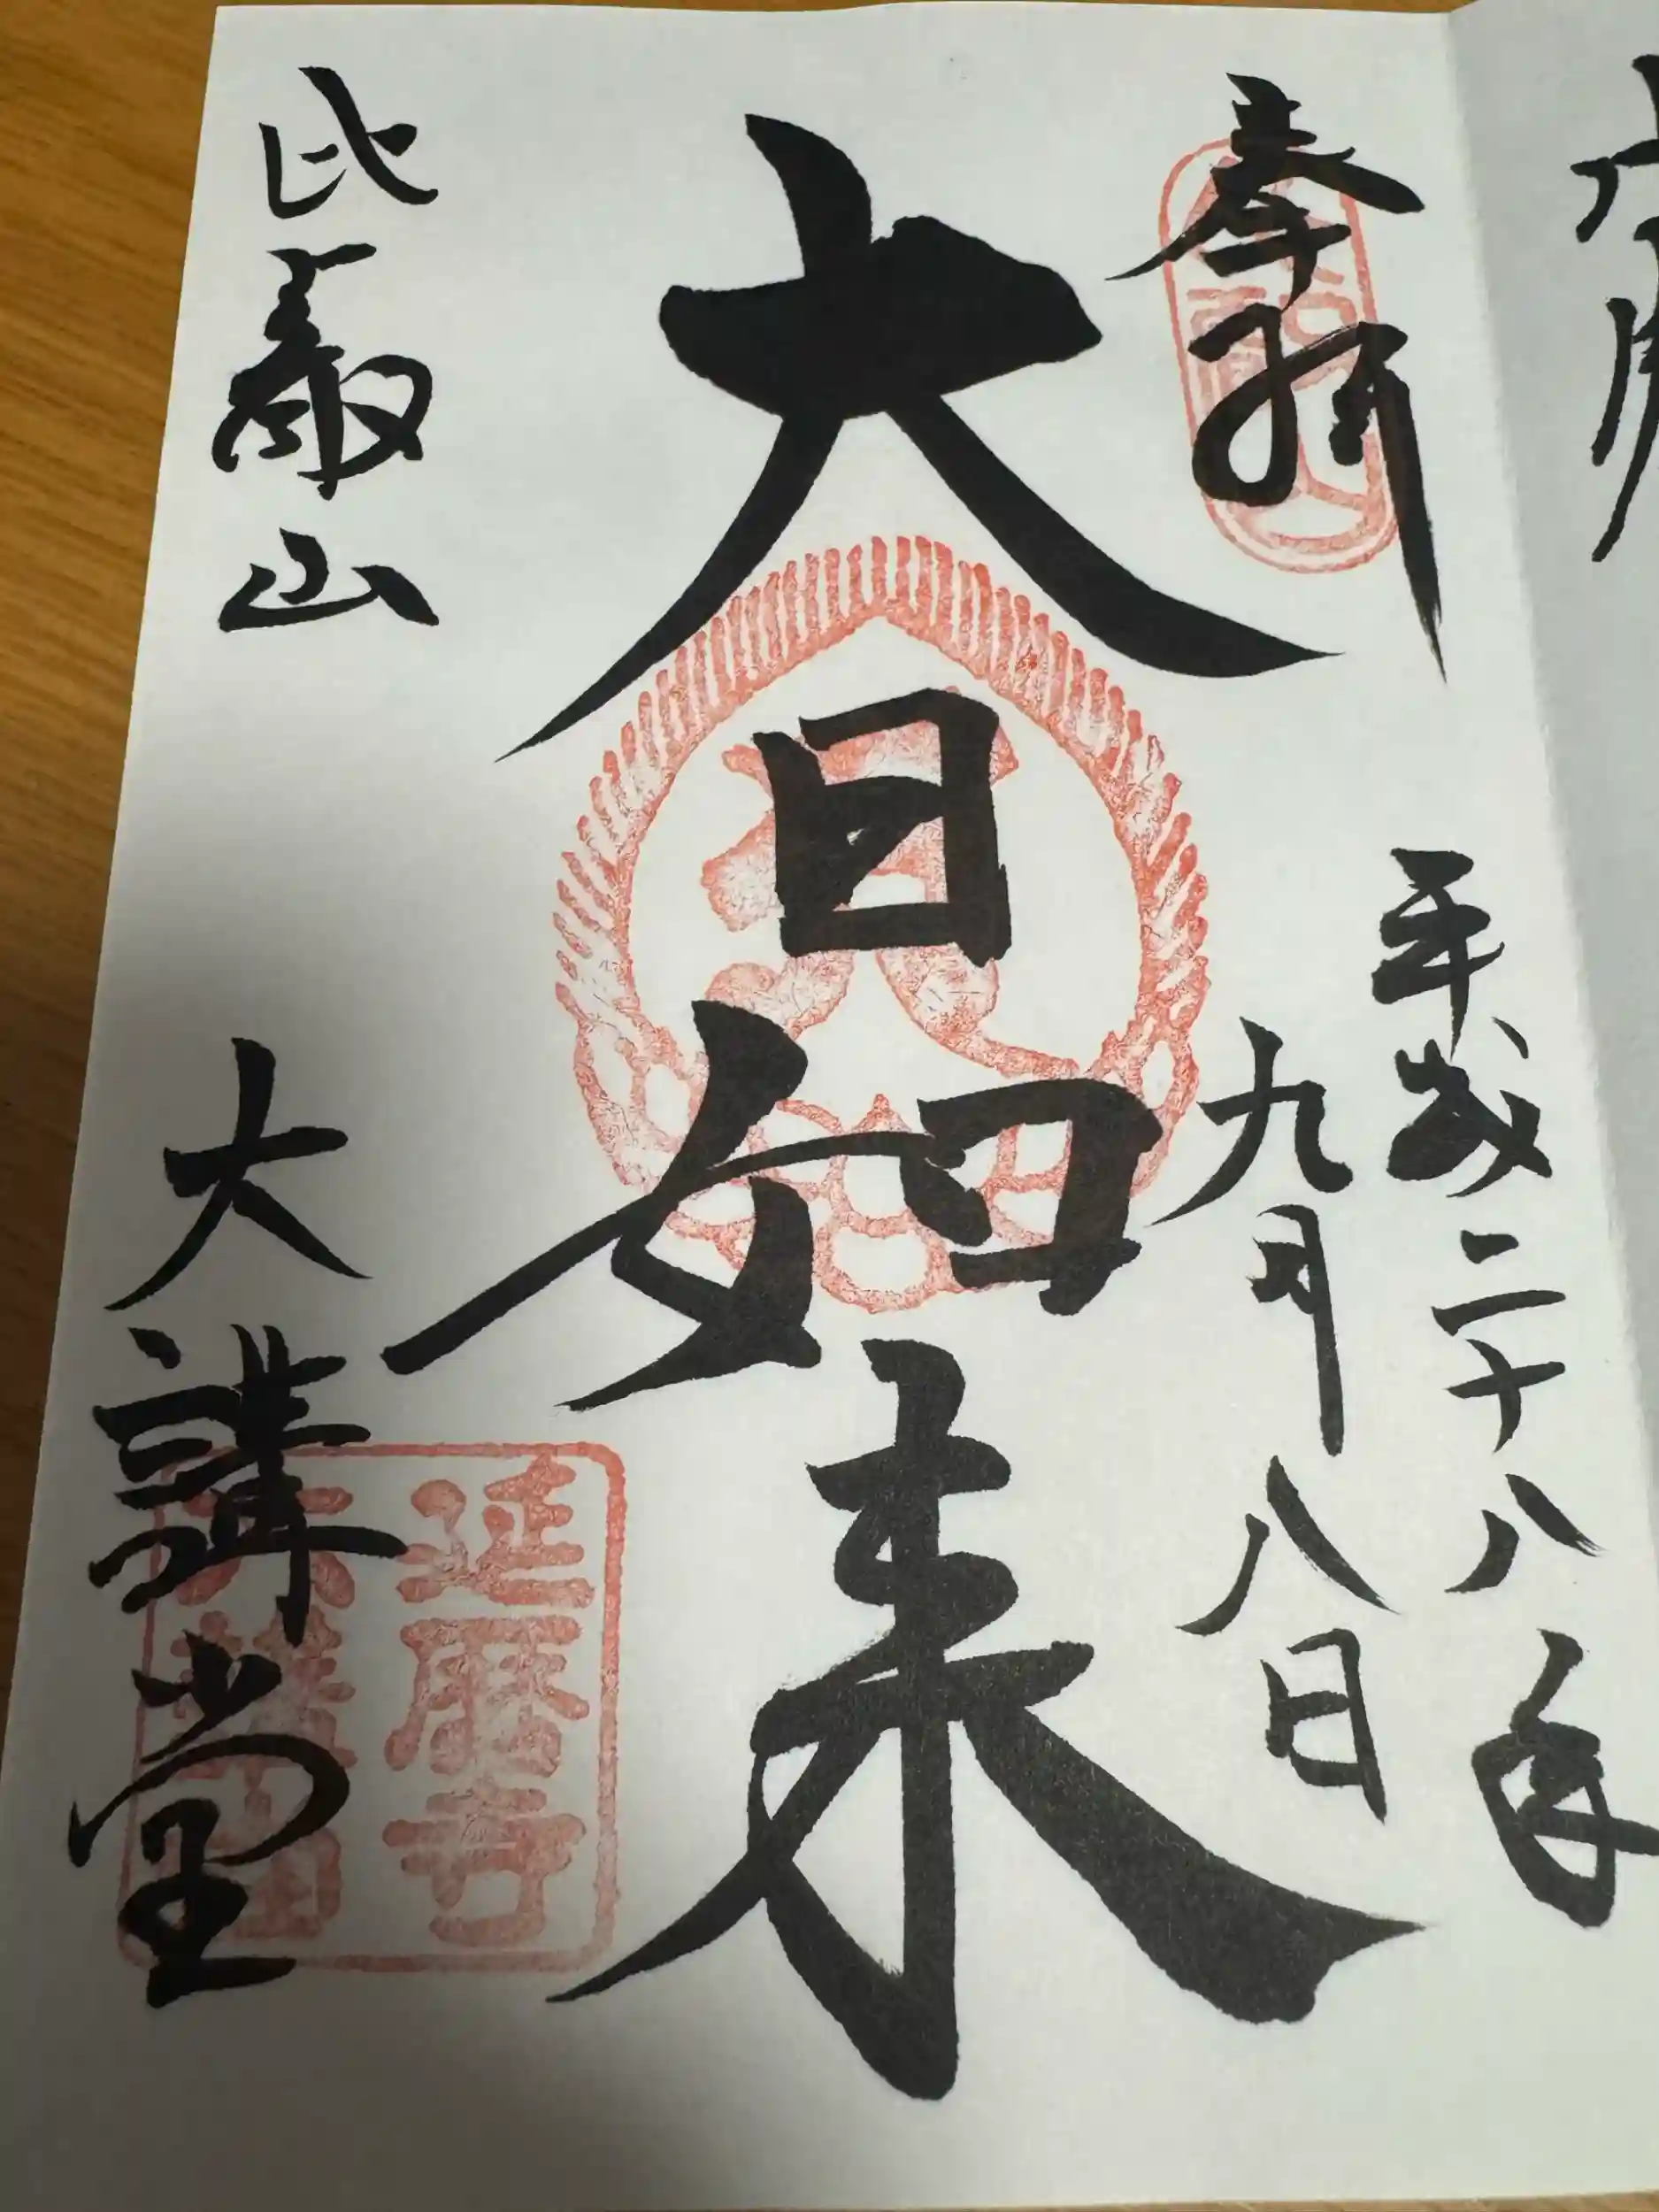 奉拝
平成二十八年
九月八日
大日如来
比叡山
大講堂
延暦寺
大講堂印